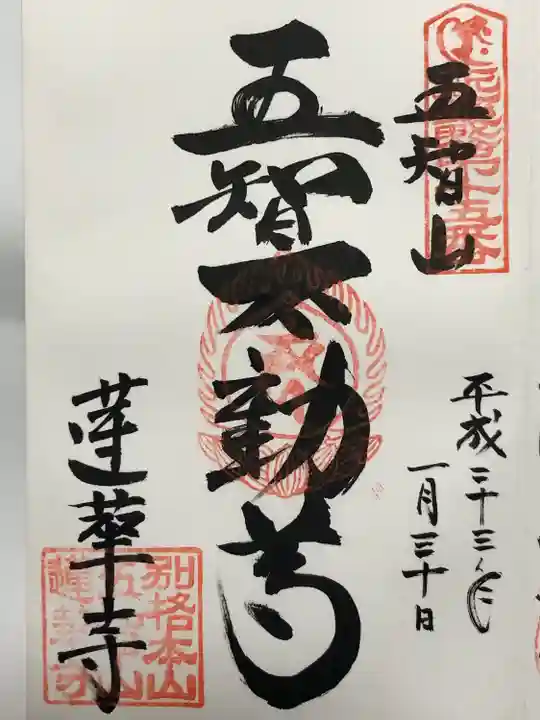 五智山
五智不動尊
平成三十三年
一月三十日
蓮華寺
別格本山
五智山
蓮華寺